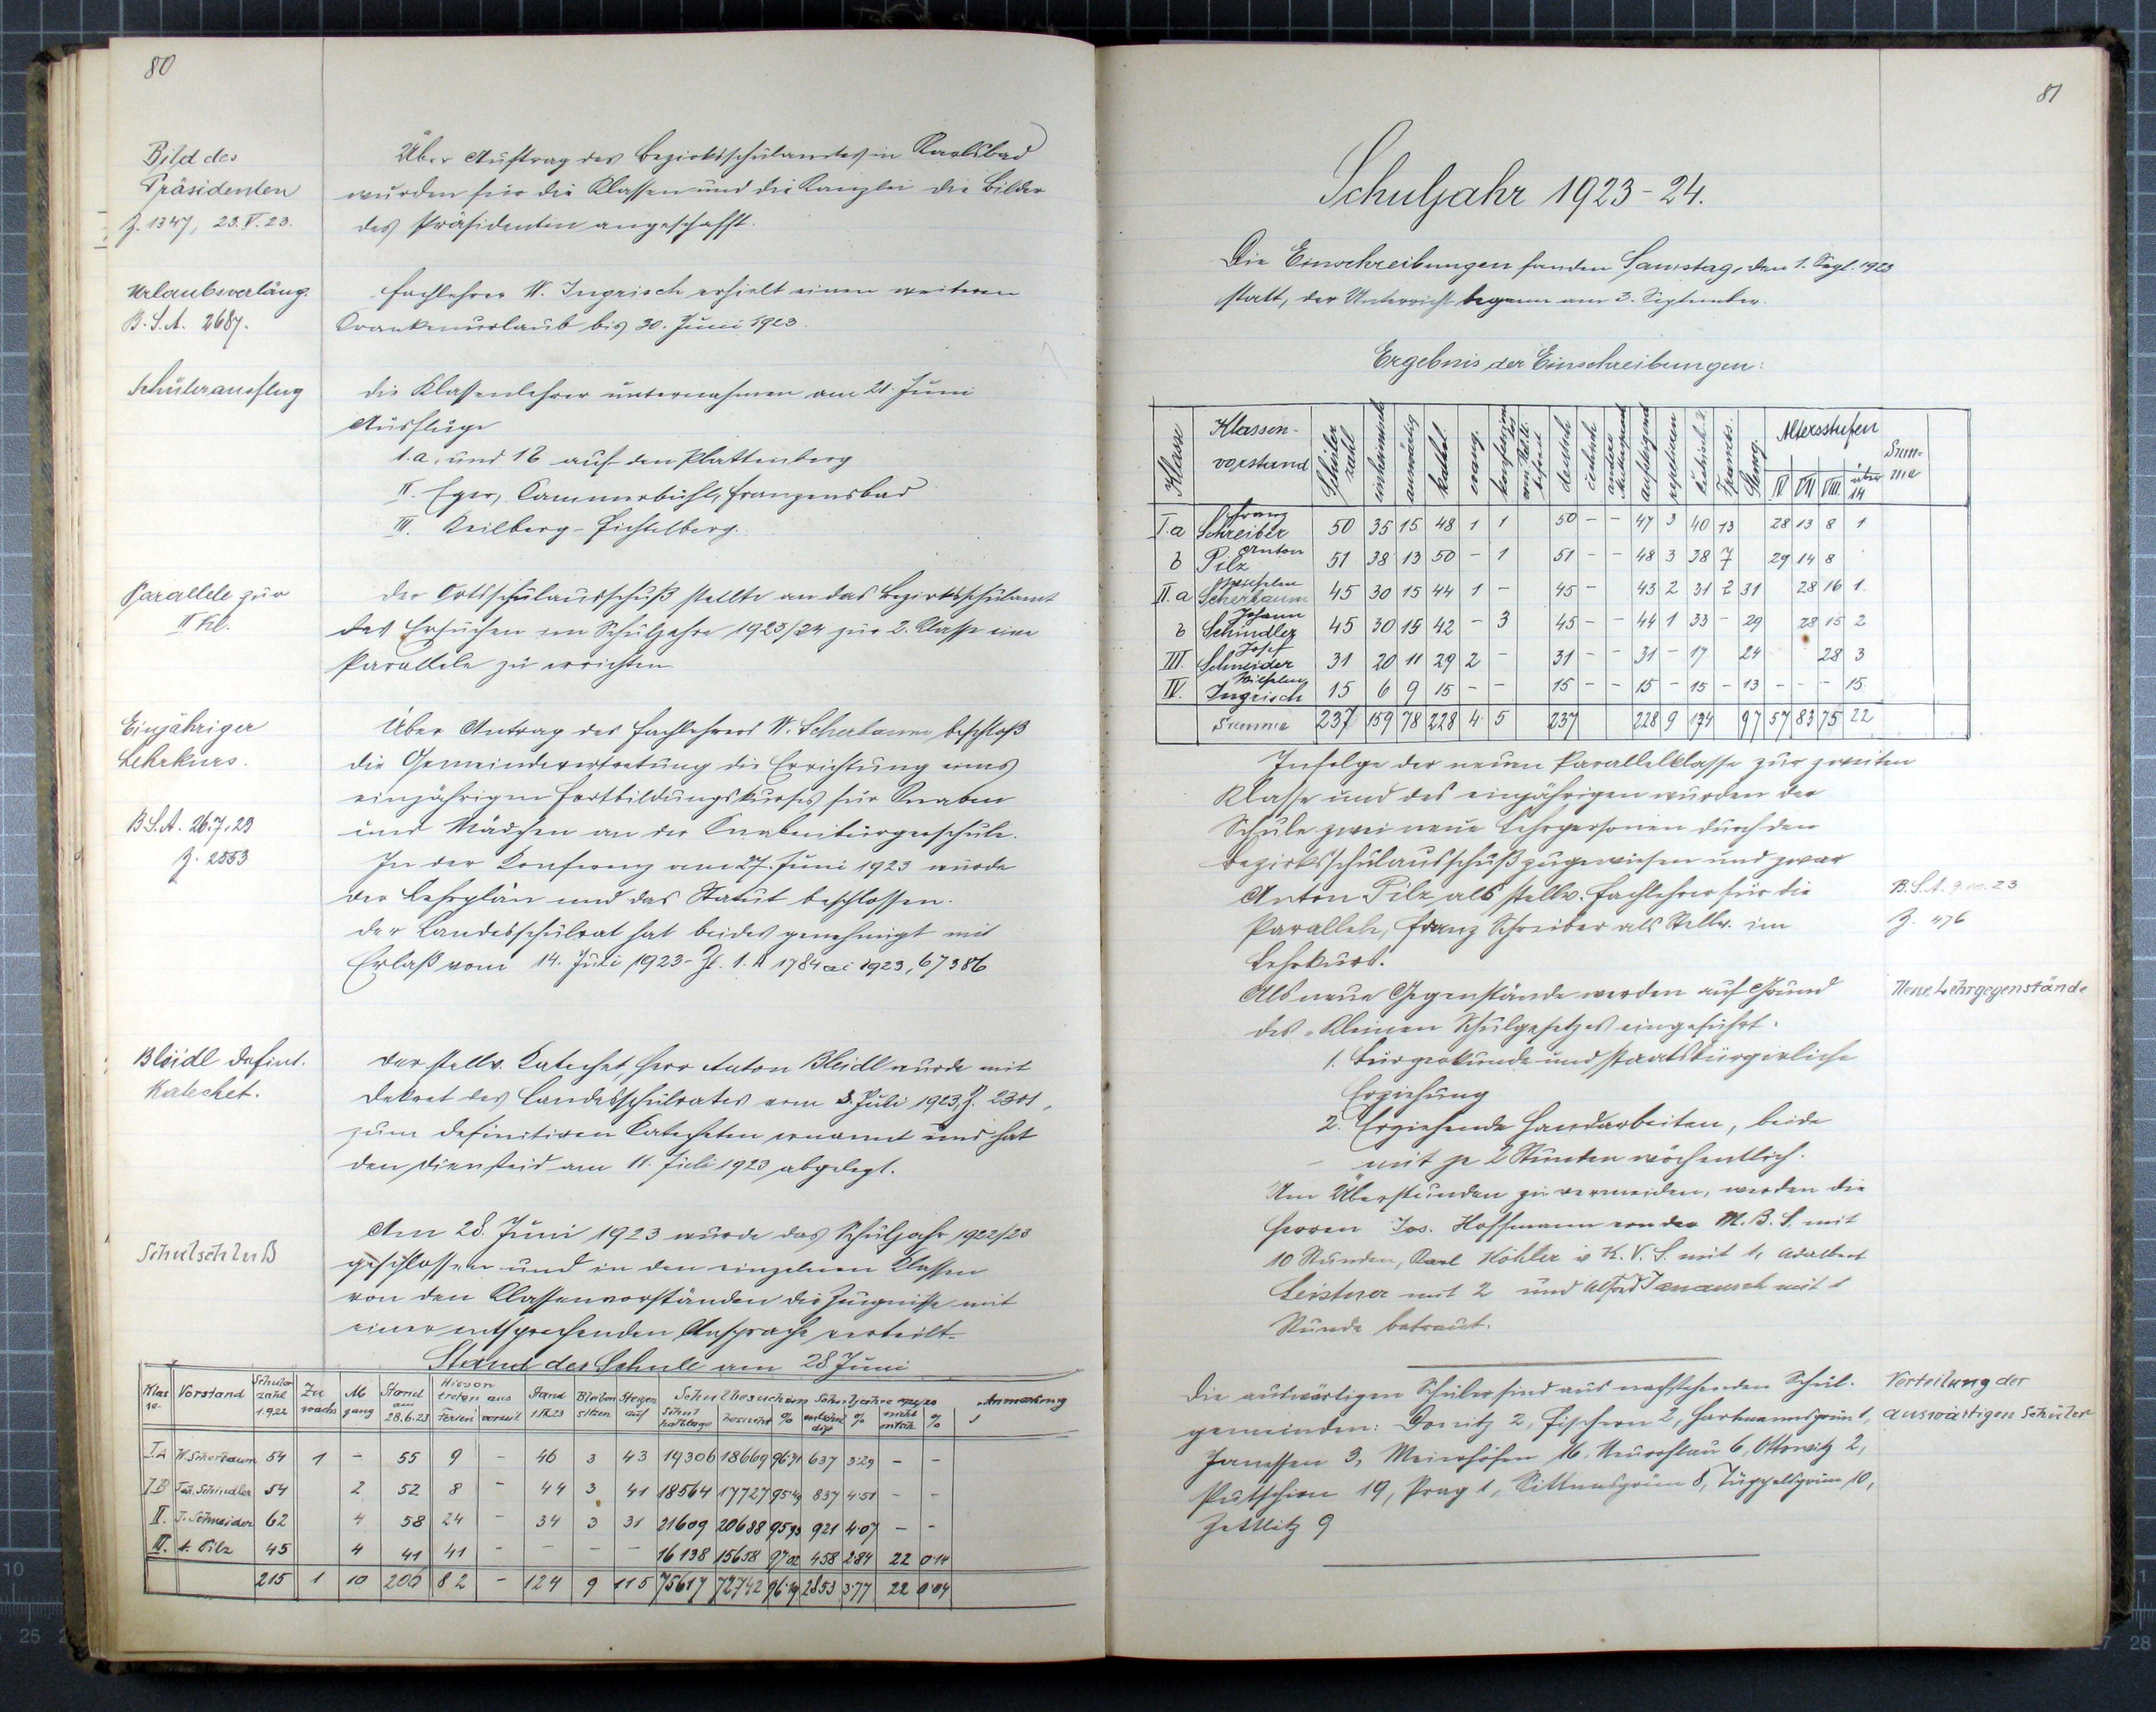 80
Bild des
Präsidenten
Z. 1347, 23.V.23.
Über Auftrag des Bezirksschulamtes in Karlsbad
wurden für die Klassen und die Kanzlei die Bilder
des Präsidenten angeschafft.
Urlaubsverläng.
B.S.A. 2687.
Fachlehrer W. Ingrisch erhielt einen weiteren
Krankenurlaub bis 30. Juni 1923.
Schülerausflug
Die Klassenlehrer unternahmen am 21. Juni
Ausflüge
1.a. und 1b auf den Plattenberg
II. Eger, Kammerbühl, Franzensbad
III. Keilberg-Fichtelberg.
Parallele zur
II Kl.
Der Ortsschulausschuß stellte an das Bezirksschulamt
das Ersuchen im Schuljahre 1923/24 zur 2. Klasse eine
Parallele zu errichten
Einjähriger
Lehrkurs.
B.S.A. 26.7.23
Z. 2553
Über Antrag des Fachlehrers W. Scherbaum beschloß
die Gemeindevertretung die Errichtung eines
einjährigen Fortbildungskurses für Knaben
und Mädchen an der Knabenbürgerschule.
In der Konferenz am 27. Juni 1923 wurde
der Lehrplan und das Statut beschlossen.
Der Landesschulrat hat beides genehmigt mit
Erlaß vom 14. Juli 1923 - Zl. 1. A 1784 ai 1923, 67386
Bleidl definit.
Katechet.
Der stellv. Katechet, Herr Anton Bleidl wurde mit
Dekret des Landesschulrates vom 3. Juli 1923, Z. 2301,
zum definitiven Katecheten ernannt und hat
den Diensteid am 11. Juli 1923 abgelegt.
Schulschluß
Am 28. Juni 1923 wurde das Schuljahr 1922/23
geschlossen und in den einzelnen Klassen
von den Klassenvorständen die Zeugnisse mit
einer entsprechenden Ansprache verteilt.
Stand der Schule am 28 Juni
Klasse Vorstand Schülerzahl 1.9.22 Zuwachs Abgang Stand am 28.6.23 Hievon treten aus Ferien Stand Bleiben sitzen Steigen auf Schulbesuch im Schuljahre Schulhalbtage besucht % % nicht % Anmerkung
I.A W. Scherbaum 54 1 - 55 9 - 46 3 43 19306 18669 96.71 637 3.29 - -
I.B Joh. Schindler 54 2 52 8 - 44 3 41 18564 17727 95.49 837 4.51 - -
II. J. Schneider 62 4 58 24 - 34 3 31 21609 20688 95.93 921 4.07 - -
III. A. Pilz 45 4 41 41 - - - - 16138 15658 97.02 458 2.84 22 0.14
215 1 10 206 82 - 124 9 115 75617 72742 96.19 2853 3.77 22 0.04
81
Schuljahr 1923-24.
Die Einschreibungen fanden Samstag, den 1. Sept. 1923
statt, der Unterricht begann am 3. September.
Ergebnis der Einschreibungen:
Klasse Klassenvorstand Schülerzahl einheimisch auswärtig kathol. evang. deutsch čechisch andere Muttersprache aufsteigend repetieren Französ. Stenog. Altersstufen VI VII VIII über 14 Summe
I.a Franz Schreiber 50 35 15 48 1 1 50 - - 47 3 40 13 28 13 8 1
b Anton Pilz 51 38 13 50 - 1 51 - - 48 3 38 7 29 14 8
II.a Scherbaum 45 30 15 44 1 - 45 - 43 2 31 2 31 28 16 1
b Johann Schindler 45 30 15 42 - 3 45 - - 44 1 33 - 29 28 15 2
III Josef Schneider 31 20 11 29 2 - 31 - - 31 - 17 24 28 3
IV. Wilhelm Ingrisch 15 6 9 15 - - 15 - - 15 - 15 - 13 - - - 15
Summe 237 159 78 228 4 5 237 228 9 174 97 57 83 75 22
Infolge der neuen Parallelklasse zur zweiten
Klasse und des einjährigen wurden der
Schule zwei neue Lehrpersonen durch den
Bezirksschulausschuß zugewiesen und zwar
Anton Pilz als stellv. Fachlehrer für die
Parallele, Franz Schreiber als Stellv. im
Lehrkurs.
B.S.A. 9.10.23
Z. 476
Als neue Gegenstände werden auf Grund
des „Kleinen Schulgesetzes eingeführt:
Neue Lehrgegenstände
1. Bürgerkunde und staatsbürgerliche
Erziehung
2. Erziehende Handarbeiten, beide
mit je 2 Stunden wöchentlich.
Um Überstunden zu vermeiden, werden die
Herren Jos. Hoffmann von der M.B.S. mit
10 Stunden, Karl Köhler K.V.S. mit 1, Adalbert
Leistner mit 2 und Alfred mit 1
Stunde betraut.
Die auswärtigen Schüler sind aus nachstehenden Schul-
gemeinden: Donitz 2, Fischern 2, Hartmannsgrün 1,
Janessen 3, Meierhöfen 16, Neurohlau 6, Ottowitz 2,
Putschirn 19, Prag 1, Sittmesgrün 8, Tüppelsgrün 10,
Zettlitz 9
Verteilung der
auswärtigen Schüler